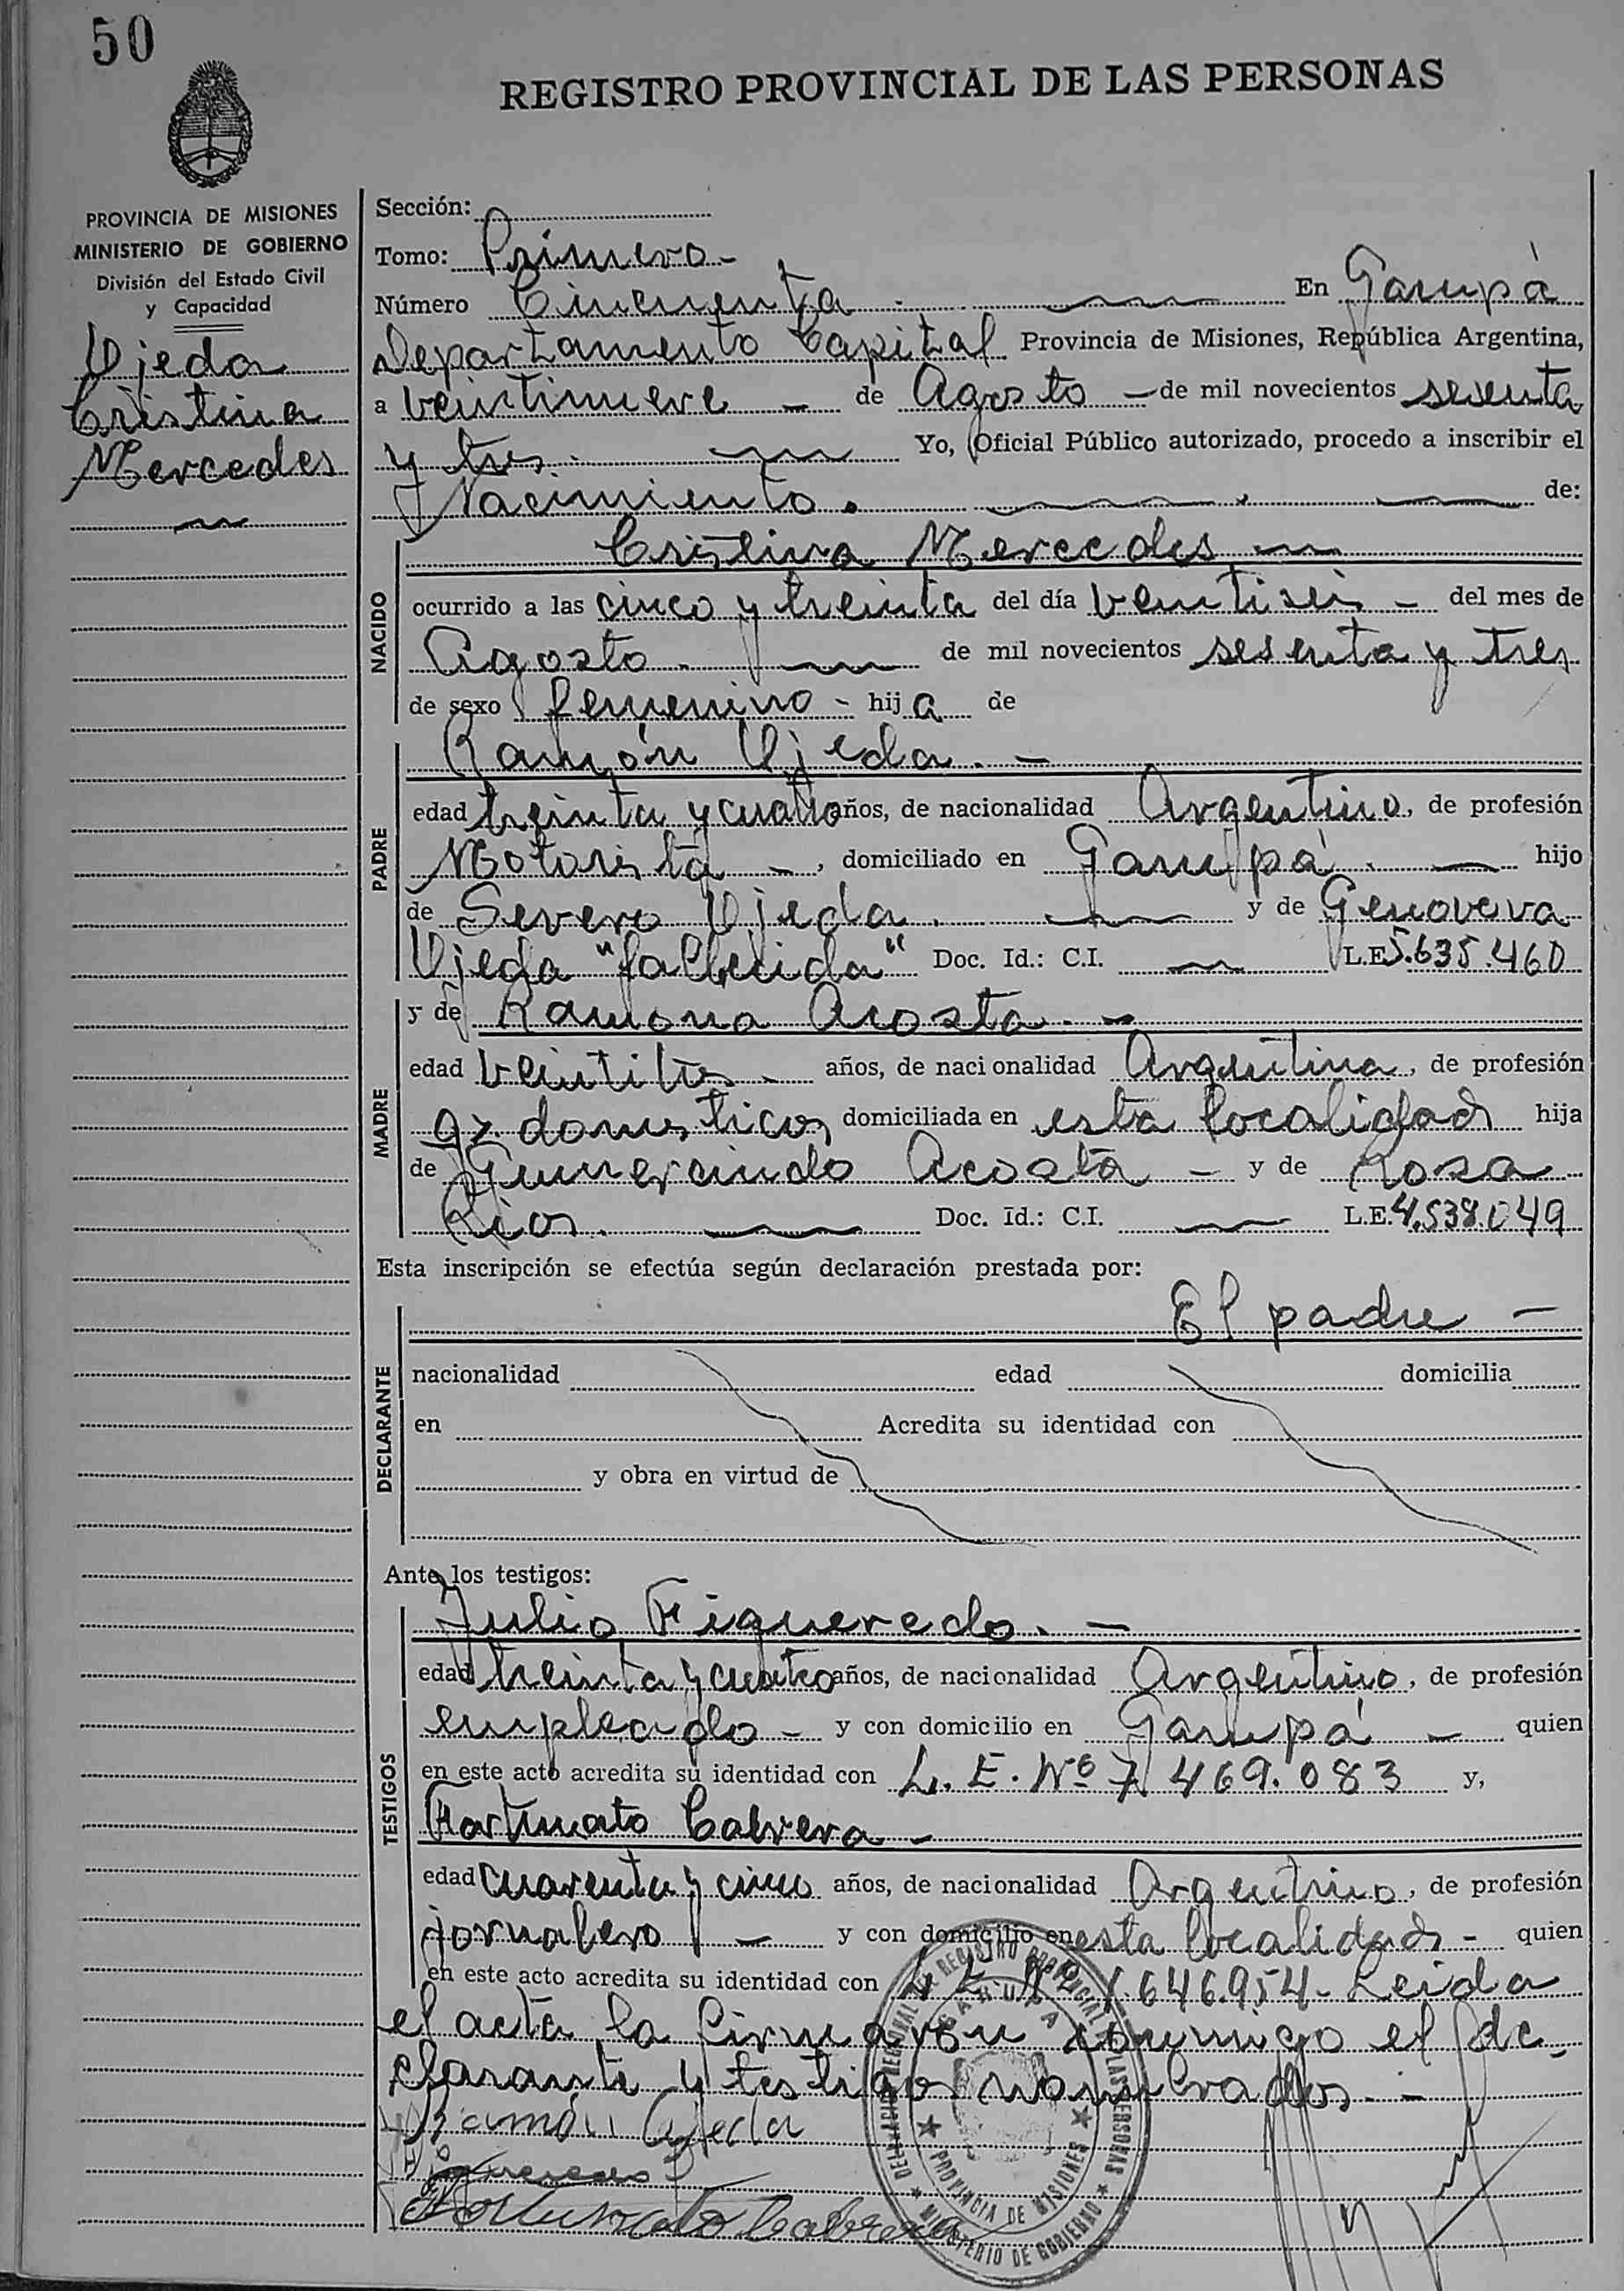 50
REGISTRO PROVINCIAL DE LAS PERSONAS
PROVINCIA DE MISIONES
MINISTERIO DE GOBIERNO
División del Estado Civil
y Capacidad
Ojeda
Cristina
Mercedes
Sección:
Tomo: Primero -
Número Cincuenta. En Garupá
Departamento Capital Provincia de Misiones, República Argentina,
a veintinueve - de Agosto - de mil novecientos sesenta
y tres. Yo, Oficial Público autorizado, procedo a inscribir el
Nacimiento. de:
NACIDO
Cristina Mercedes
ocurrido a las cinco y treinta del día veintiseis - del mes de
Agosto. de mil novecientos sesenta y tres
de sexo femenino - hija de
PADRE
Ramón Ojeda. -
edad treinta y cuatro años, de nacionalidad Argentino, de profesión
Motorista -, domiciliado en Garupá. hijo
de Severo Ojeda. y de Genoveva
Ojeda "fallecida" Doc. Id.: C.I. L.E. 5.635.460
MADRE
y de Ramona Acosta. -
edad veintitres - años, de nacionalidad Argentina, de profesión
qz domesticos domiciliada en esta localidad hija
de Gumercindo Acosta - y de Rosa
Rios. Doc. Id.: C.I. L.E. 4.538.049
Esta inscripción se efectúa según declaración prestada por:
DECLARANTE
El padre -
nacionalidad edad domicilia
en Acredita su identidad con
y obra en virtud de
Ante los testigos:
TESTIGOS
Julio Figueredo. -
edad treinta y cuatro años, de nacionalidad Argentino, de profesión
empleado - y con domicilio en Garupá - quien
en este acto acredita su identidad con L. E. Nº 7.469.083 y,
Fortunato Cabrera -
edad cuarenta y cinco años, de nacionalidad Argentino, de profesión
jornalero - y con domicilio en esta localidad - quien
en este acto acredita su identidad con L E Nº 1.646.954- Leida
el acta, la firmaron conmigo el de-
clarante y testigos nombrados. -
Ramón Ojeda
Figueredo
Fortunato Cabrera
DELEGACION REGIONAL DEL REGISTRO PROVINCIAL DE LAS PERSONAS
GARUPA
PROVINCIA DE MISIONES
MINISTERIO DE GOBIERNO